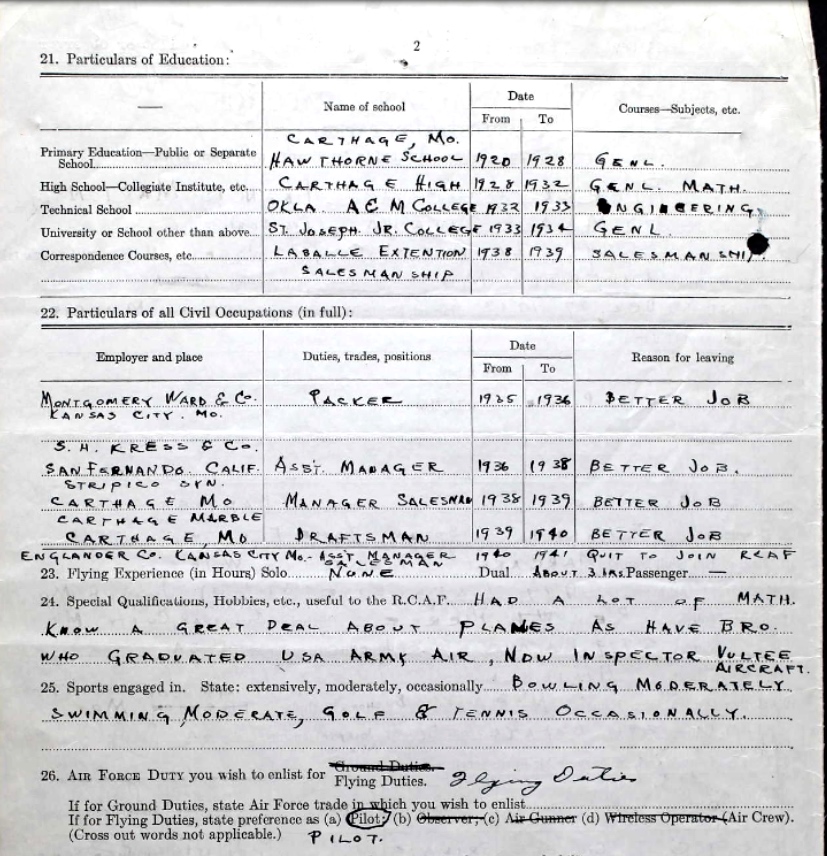 2
21. Particulars of Education:
Name of school Date From To Courses—Subjects, etc.
CARTHAGE, MO.
Primary Education—Public or Separate School HAWTHORNE SCHOOL 1920 1928 GENL.
High School—Collegiate Institute, etc. CARTHAGE HIGH 1928 1932 GENL. MATH.
Technical School OKLA. A & M COLLEGE 1932 1933 ENGINEERING
University or School other than above ST. JOSEPH JR. COLLEGE 1933 1934 GENL
Correspondence Courses, etc. LASALLE EXTENTION 1938 1939 SALESMANSHIP
SALESMANSHIP
22. Particulars of all Civil Occupations (in full):
Employer and place Duties, trades, positions Date From To Reason for leaving
MONTGOMERY WARD & CO. PACKER 1935 1936 BETTER JOB
KANSAS CITY. MO.
S. H. KRESS & CO.
SAN FERNANDO. CALIF. ASST. MANAGER 1936 1938 BETTER JOB.
STRIPICO SYN.
CARTHAGE MO MANAGER SALESMAN 1938 1939 BETTER JOB
CARTHAGE MARBLE
CARTHAGE, MO DRAFTSMAN 1939 1940 BETTER JOB
ENGLANDER CO. KANSAS CITY MO.- ASST. MANAGER 1940 1941 QUIT TO JOIN RCAF
SALESMAN
23. Flying Experience (in Hours) Solo NONE Dual ABOUT 3 HRS. Passenger —
24. Special Qualifications, Hobbies, etc., useful to the R.C.A.F. HAD A LOT OF MATH.
KNOW A GREAT DEAL ABOUT PLANES AS HAVE BRO.
WHO GRADUATED USA ARMY AIR, NOW INSPECTOR VULTEE
AIRCRAFT.
25. Sports engaged in. State: extensively, moderately, occasionally BOWLING MODERATELY
SWIMMING, MODERATE, GOLF & TENNIS OCCASIONALLY.
26. AIR FORCE DUTY you wish to enlist for Ground Duties. Flying Duties. Flying Duties
If for Ground Duties, state Air Force trade in which you wish to enlist
If for Flying Duties, state preference as (a) Pilot; (b) Observer; (c) Air Gunner (d) Wireless Operator (Air Crew).
(Cross out words not applicable.) PILOT.